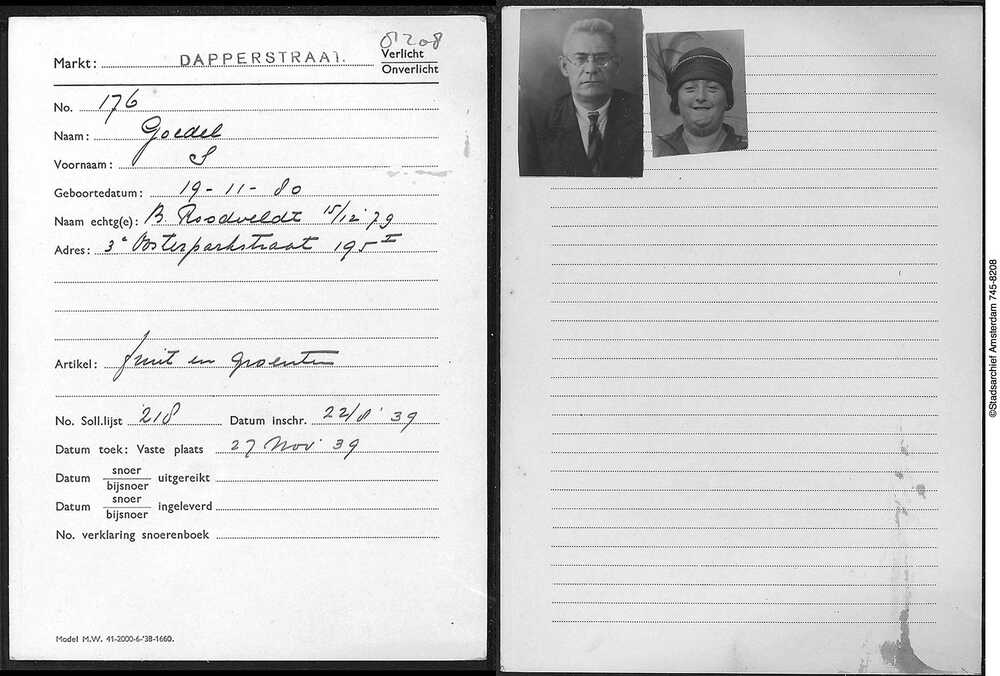 8208
Markt: DAPPERSTRAAT.
Verlicht
Onverlicht
No. 176
Naam: Goedel
Voornaam: S
Geboortedatum: 19-11-80
Naam echtg(e): B. Roodveldt 15/12 79
Adres: 3e Oosterparkstraat 195 I
Artikel: fruit en groenten
No. Soll.lijst 218 Datum inschr. 22/8 '39
Datum toek: Vaste plaats 27 Nov' 39
Datum snoer/bijsnoer uitgereikt
Datum snoer/bijsnoer ingeleverd
No. verklaring snoerenboek
Model M.W. 41-2000-6-'38-1660.
©Stadsarchief Amsterdam 745-8208